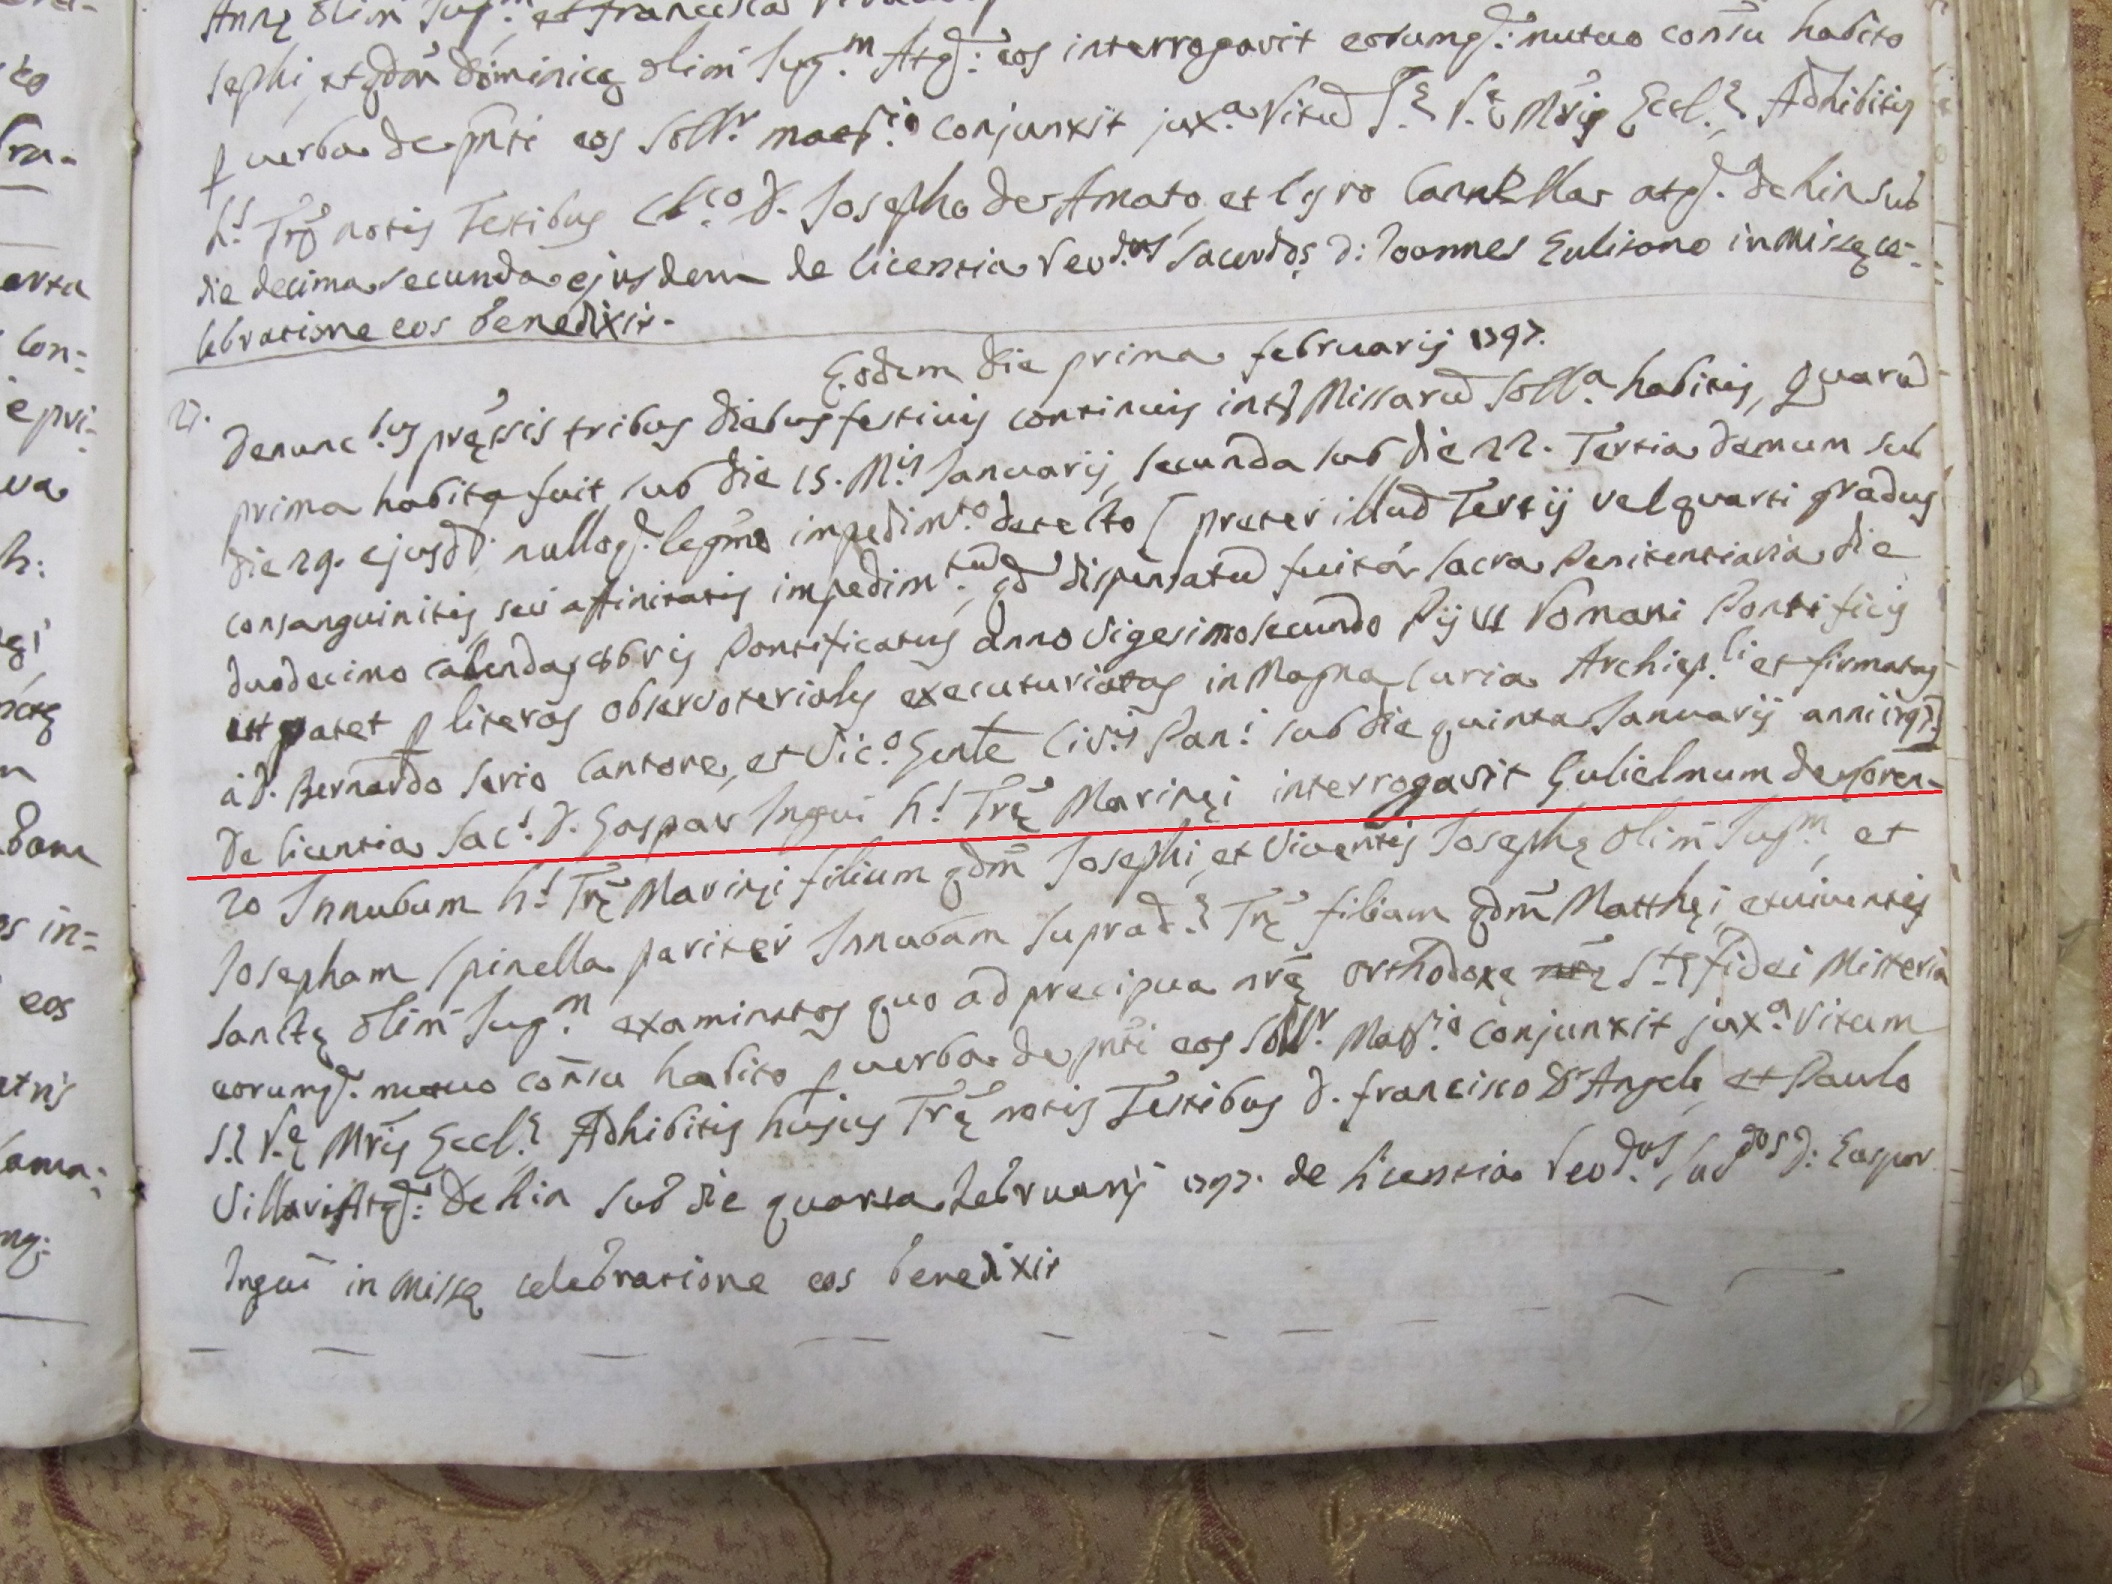 Annę olim Jug.m et Francisca
sephi, et qdm̃ Dominicę olim Jug.m Atq: eos interrogavit eorumq: mutuo consũ habito
p verba de pñti eos soll.r matr.io conjunxit jux.a Ritũ S.ę R.ę Mr̃is Eccl.ę Adhibitis
h.s Trę notis Testibus Cl.co D. Josepho de Amato, et Cyro Cannella atq. dehin sub
die decima secunda ejusdem de licentia Rev.dus Sacerdos D: Joannes Gulisano in Missę ce-
lebratione eos benedixit.
Eodem die prima februarij 1797.
Denunc.bus pręssis tribus diebus festivis continuis inter Missarũ soll.a habitis, Quarũ
prima habita fuit sub die 15. M.is Januarij, secunda sub die 22. Tertia demum sub
die 29. ejusd. nulloq. legmõ impedim.to detecto [preter illud Tertij vel quarti gradus
consanguinitis seu affinitatis impedim.tum, qd dispensatũ fuit à Sacra Penitentiaria die
duodecimo calendas 8bris Pontificatus anno vigesimo secundo Pij VI Romani Pontificis
ut patet p literas observoterialis executuriatas in Magna Curia Archiep.li et firmatas
à D. Bernardo Serio Cantore, et Vic.o Gen̄le Civ.is Pan.i sub die quinta Januarij anni 1797]
de licentia Sac.s D. Gaspar Ingui h.s Trę Marinęi interrogavit Gulielmum de Loren-
zo Innubum h.s Trę Marinęi filium qdm̃ Josephi, et viventis Josephę olim Jug.m, et
Josepham Spinella pariter Innubam suprad.ę Trę filiam qdm̃ Matthęi, et viventis
Sanctę olim Jug.m examinatos quo ad precipua nr̃ę orthodoxę S.tę fidei Misteria
eorumq. mutuo consũ habito p verba de pñti eos soll.r Matr.io conjunxit jux.a Ritum
S.ę R.ę Mr̃is Eccl.ę Adhibitis hujus Trę notis Testibus D. Francisco D'Angelo et Paulo
Villavi Atq: dehin sub die quarta februarij 1797. de licentia Rev.dus Sac.dos D: Gaspar
Ingui in Missę celebratione eos benedixit